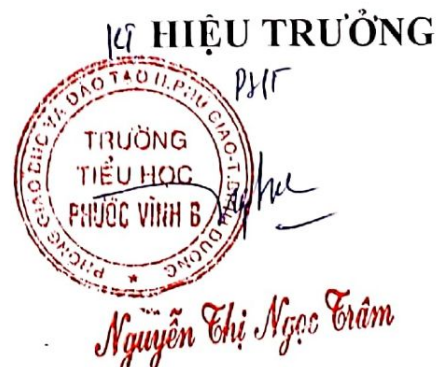 KT HIỆU TRƯỞNG
PHT
PHÒNG GIÁO DỤC VÀ ĐÀO TẠO H.PHÚ GIÁO-T.BÌNH DƯƠNG
TRƯỜNG
TIỂU HỌC
PHƯỚC VĨNH B
Nguyễn Thị Ngọc Trâm